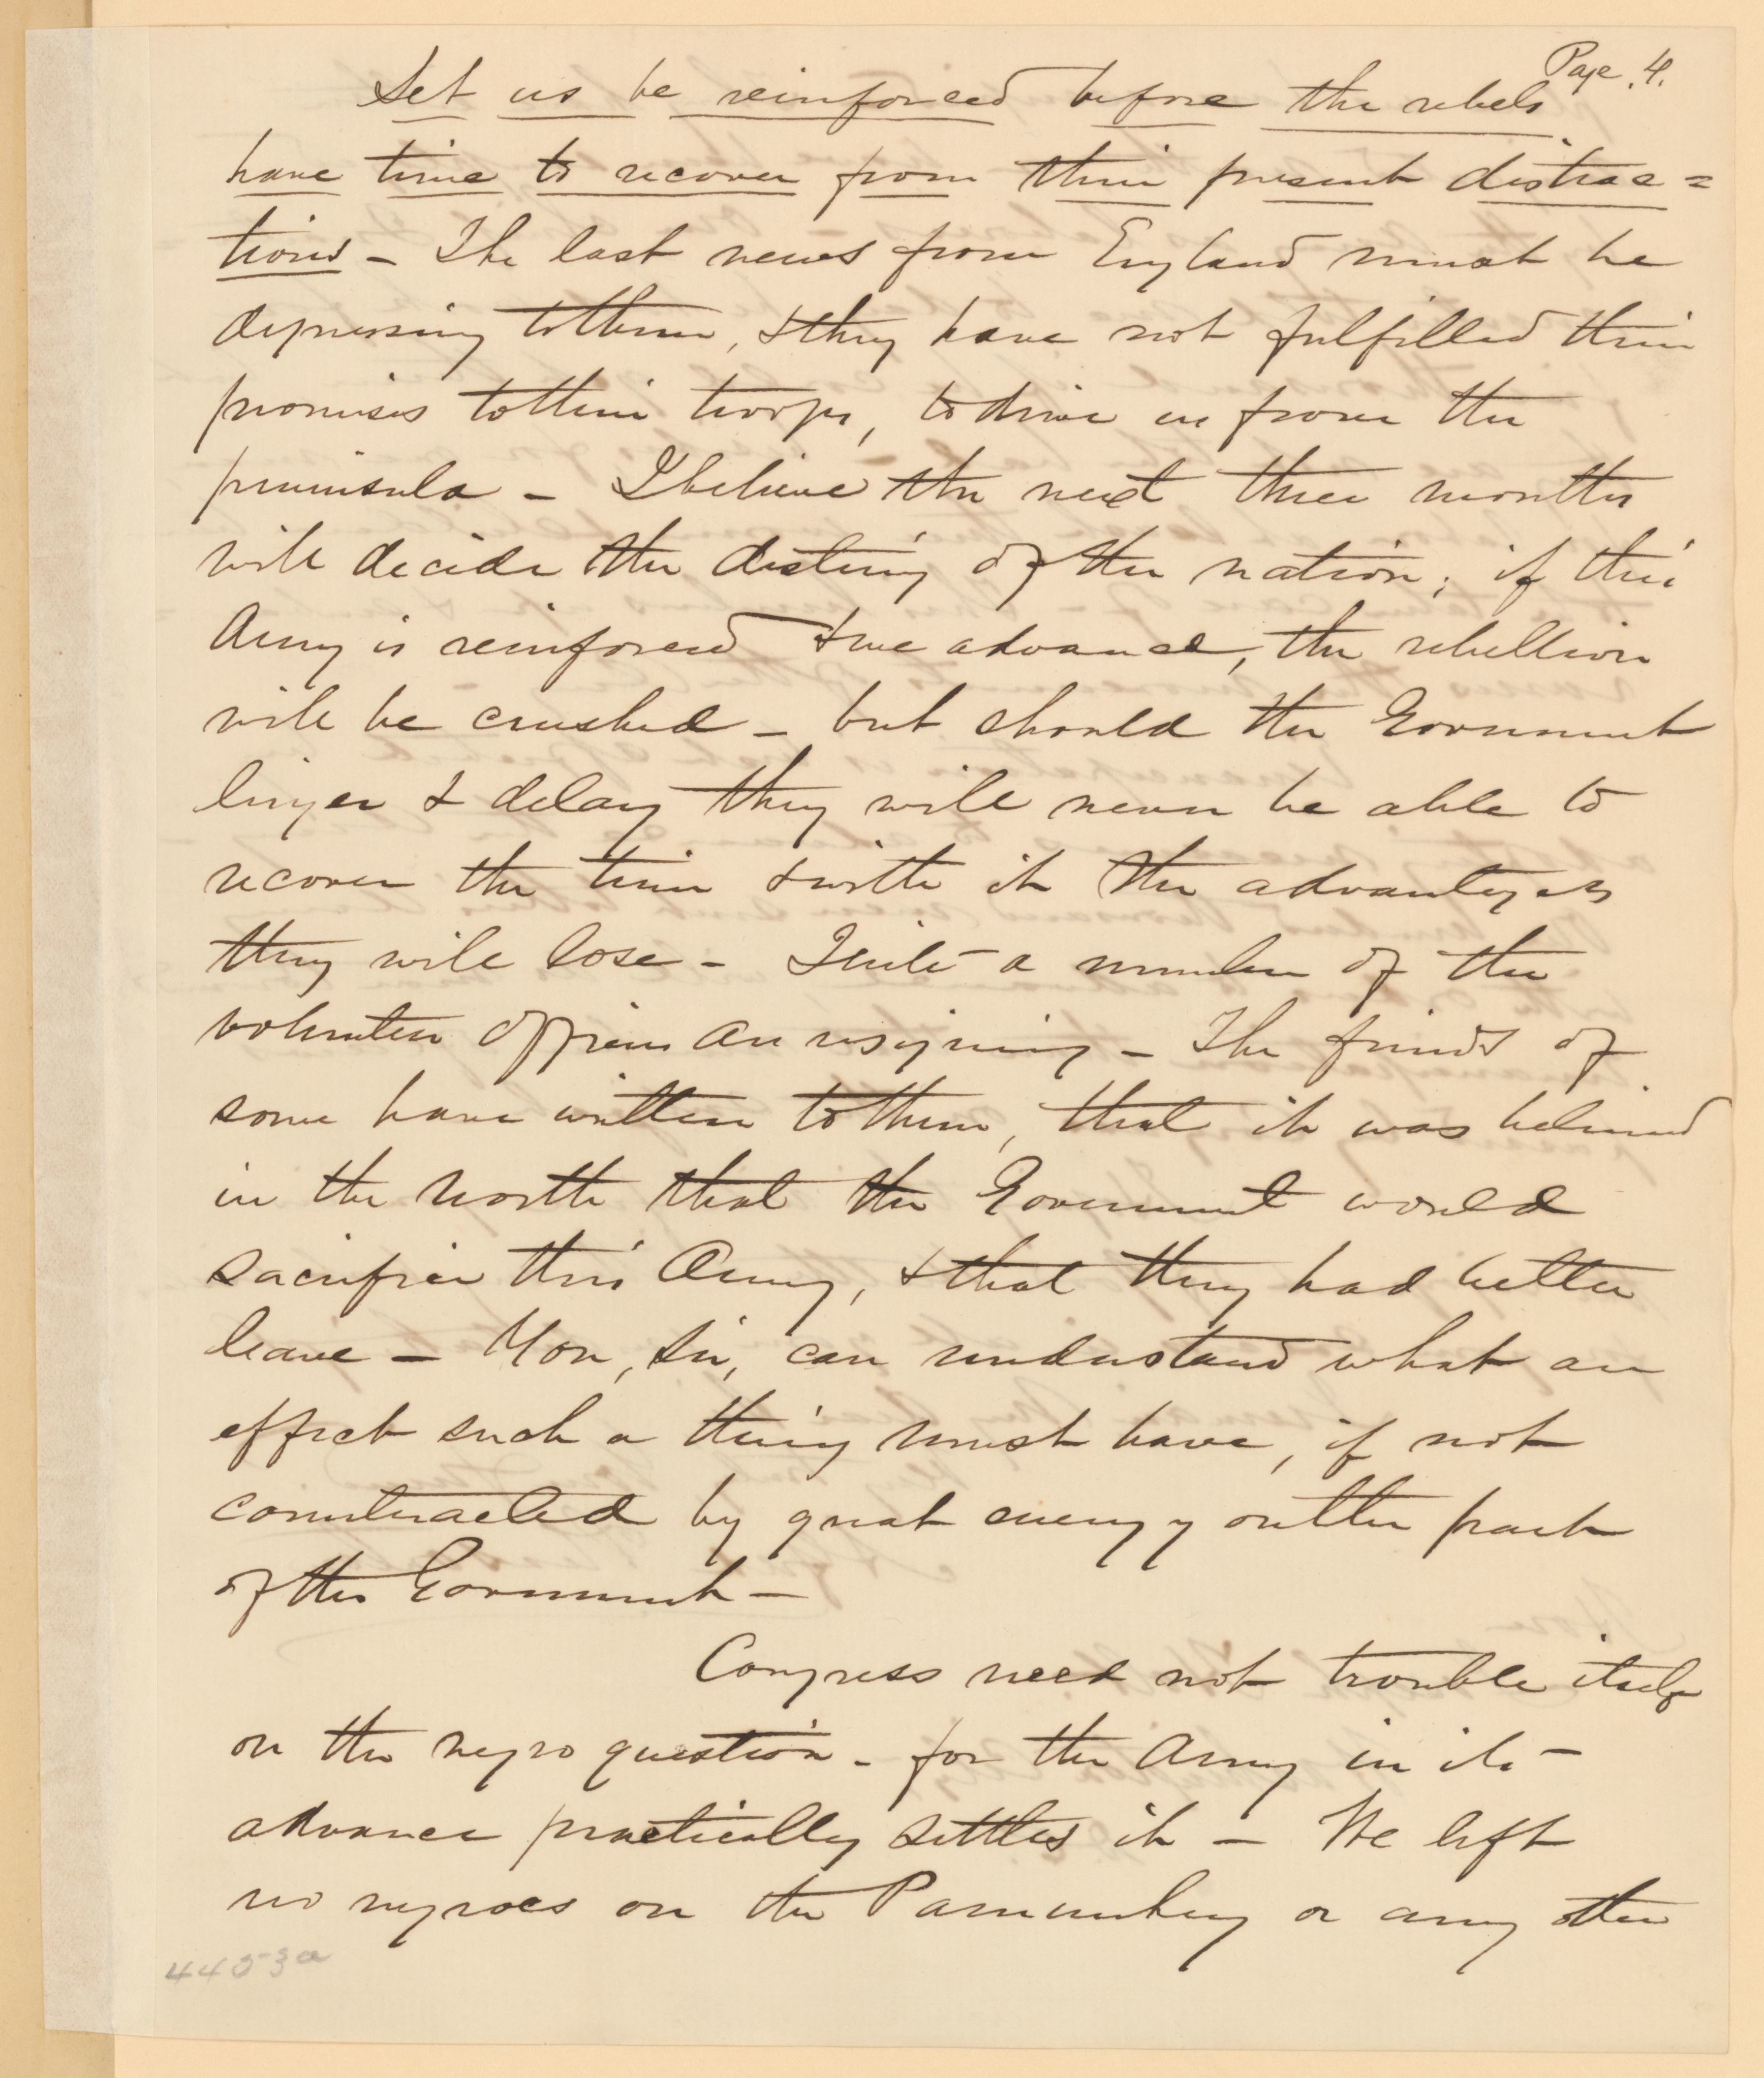 Page. 4.
Let us be reinforced before the rebels
have time to recover from their present distrac=
tions – The last news from England must be
depressing to them, & they have not fulfilled their
promises to their troops, to drive us from the
peninsula – I believe the next three months
will decide the destiny of the nation; if this
Army is reinforced & we advance, the rebellion
will be crushed – but should the Government
linger & delay they will never be able to
recover the time & with it the advantages
they will lose – Quite a number of the
volunteer officers are resigning – The friends of
some have written to them, that it was believed
in the North that the Government would
sacrifice this Army, & that they had better
leave – You, Sir, can understand what an
effect such a thing must have, if not
counteracted by great energy on the part
of the Government –
Congress need not trouble itself
on the negro question – for the Army in its
advance practically settles it – We left
no negroes on the Pamunkey or any other
4453a